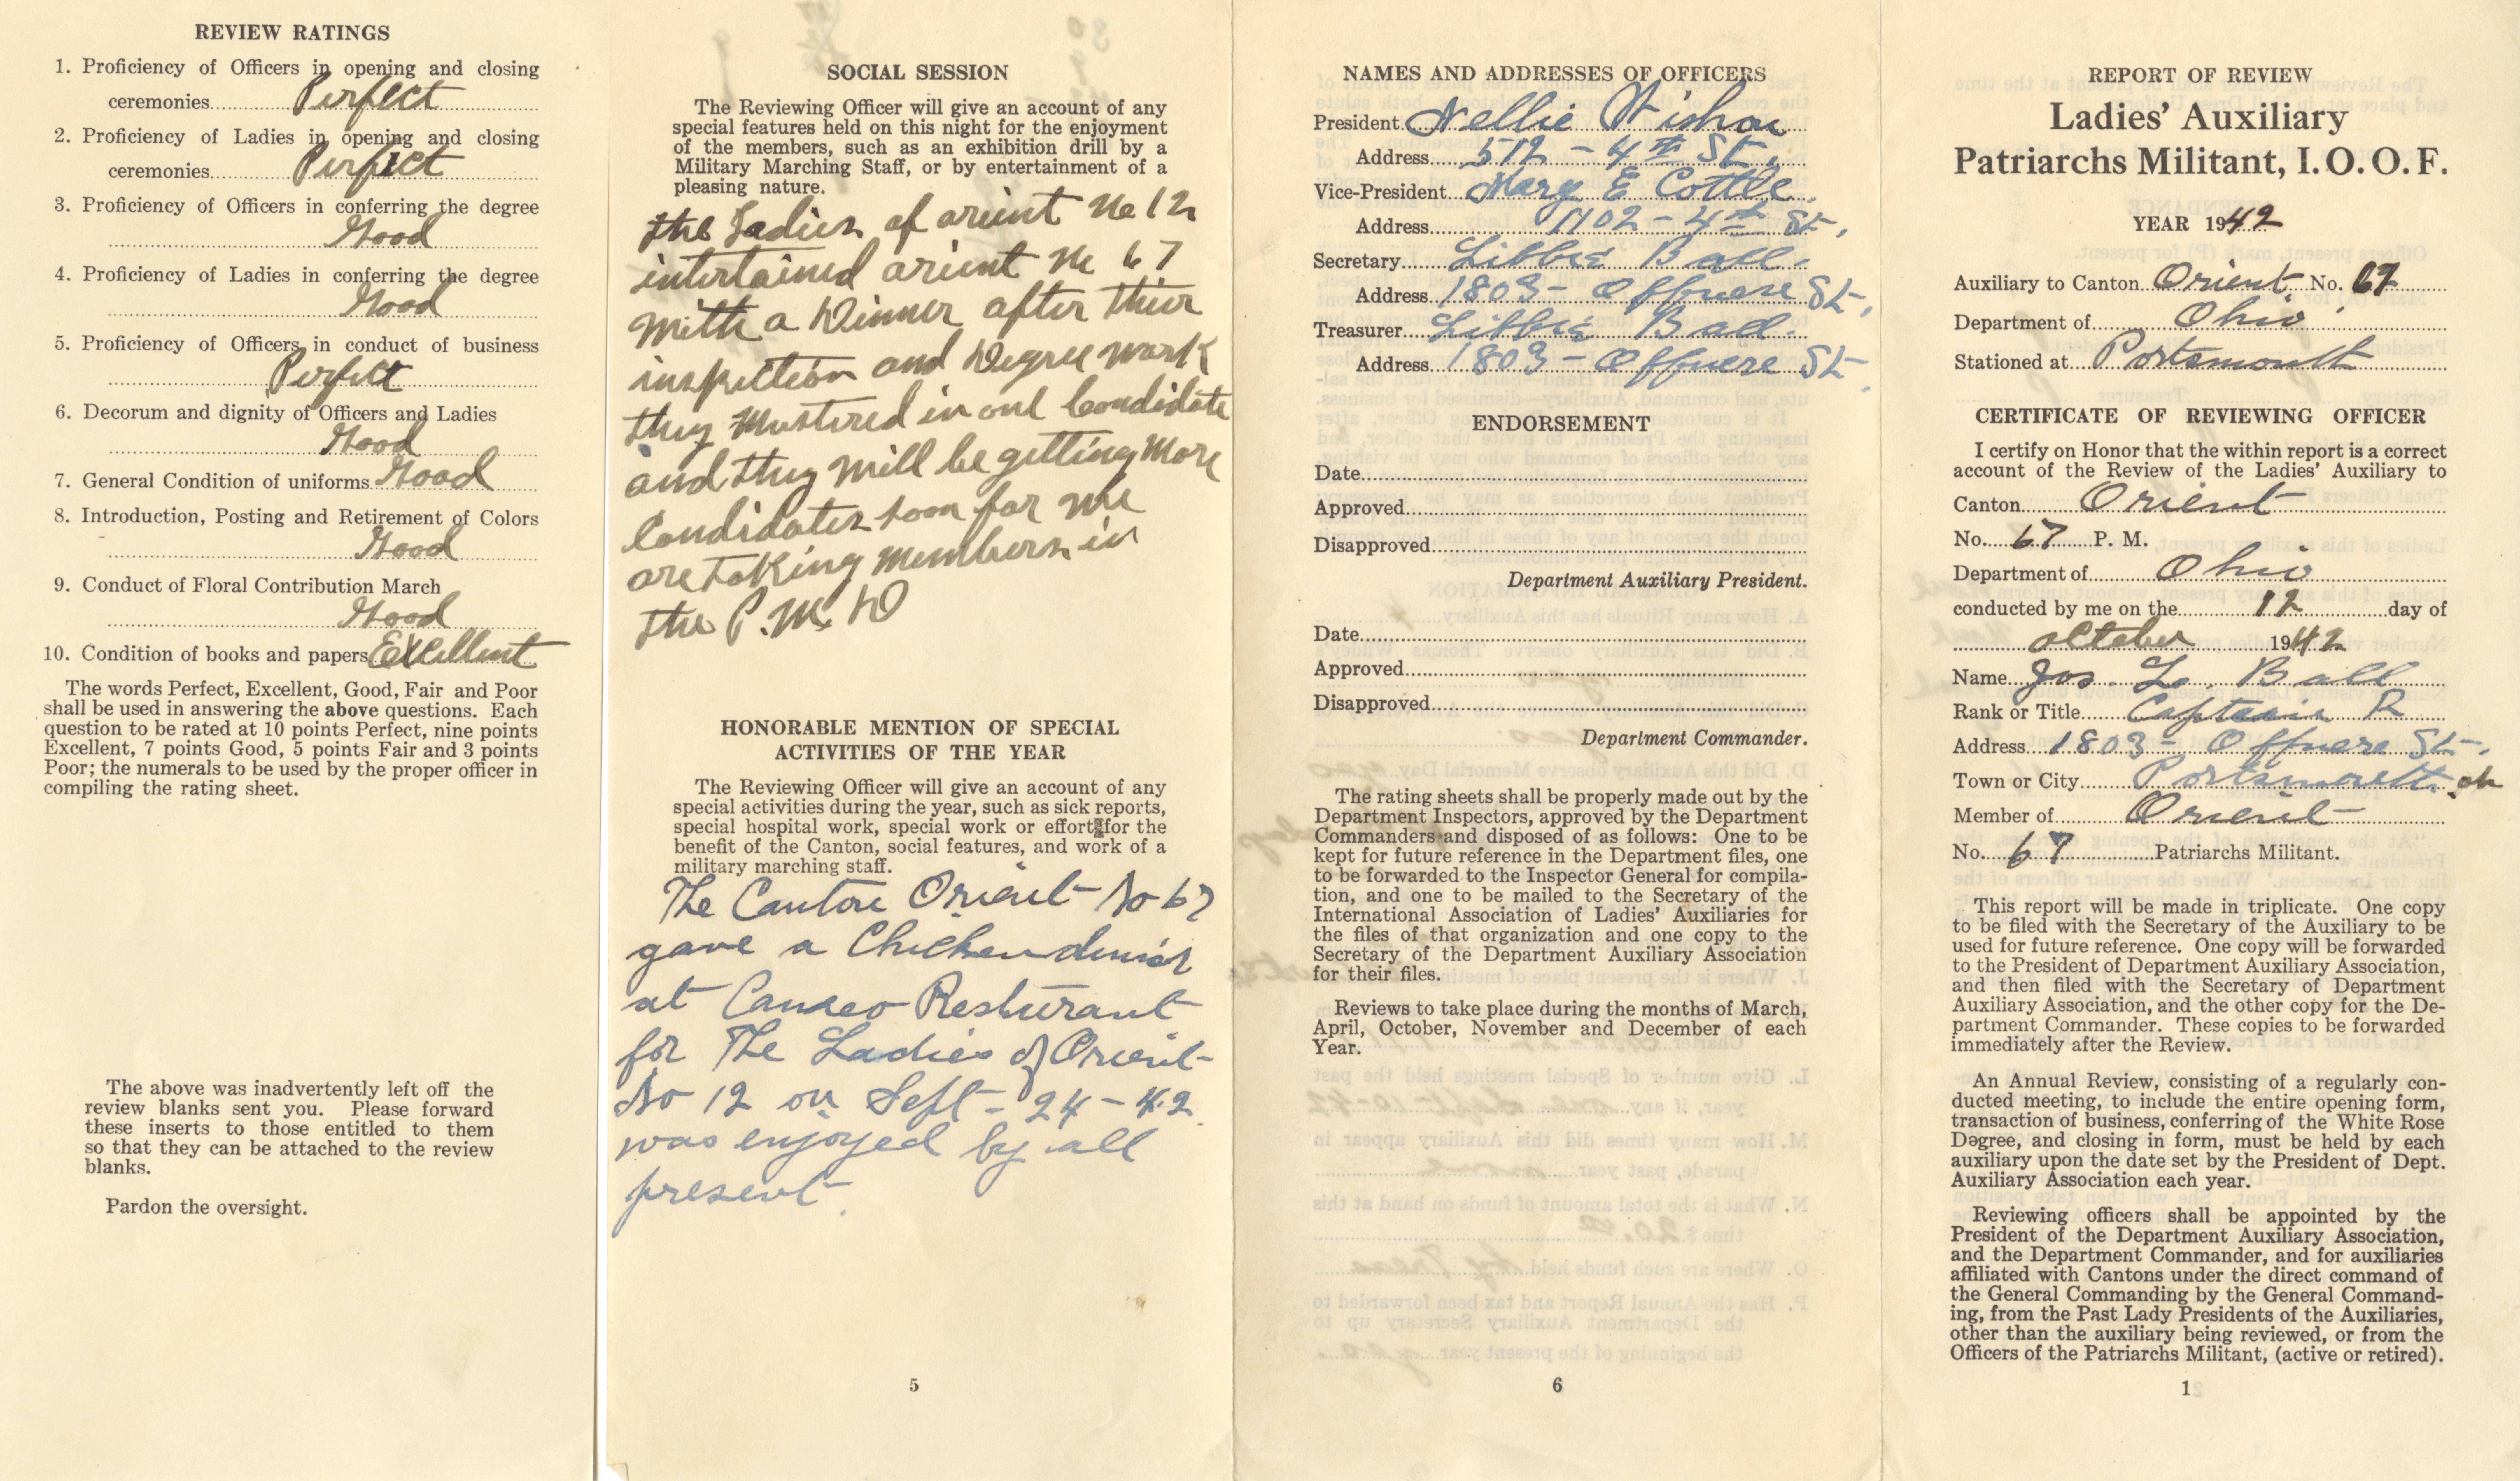 REVIEW RATINGS
1. Proficiency of Officers in opening and closing
ceremonies Perfect
2. Proficiency of Ladies in opening and closing
ceremonies Perfect
3. Proficiency of Officers in conferring the degree
Good
4. Proficiency of Ladies in conferring the degree
Good
5. Proficiency of Officers in conduct of business
Perfect
6. Decorum and dignity of Officers and Ladies
Good
7. General Condition of uniforms Good
8. Introduction, Posting and Retirement of Colors
Good
9. Conduct of Floral Contribution March
Good
10. Condition of books and papers Excellent
The words Perfect, Excellent, Good, Fair and Poor
shall be used in answering the above questions. Each
question to be rated at 10 points Perfect, nine points
Excellent, 7 points Good, 5 points Fair and 3 points
Poor; the numerals to be used by the proper officer in
compiling the rating sheet.
The above was inadvertently left off the
review blanks sent you. Please forward
these inserts to those entitled to them
so that they can be attached to the review
blanks.
Pardon the oversight.
SOCIAL SESSION
The Reviewing Officer will give an account of any
special features held on this night for the enjoyment
of the members, such as an exhibition drill by a
Military Marching Staff, or by entertainment of a
pleasing nature.
the Ladies of orient No 12
intertained orient No 67
with a Dinner after thier
inspection and Degree work
they Mustered in one Candidate
and they will be getting More
Candidates soon for we
are taking members in
the P. M. D
HONORABLE MENTION OF SPECIAL
ACTIVITIES OF THE YEAR
The Reviewing Officer will give an account of any
special activities during the year, such as sick reports,
special hospital work, special work or effort for the
benefit of the Canton, social features, and work of a
military marching staff.
The Canton Orient No 67
gave a Chicken dinner
at Resturant
for The Ladies of Orient
No 12 on Sept - 24 - 42
was enjoyed by all
present.
5
NAMES AND ADDRESSES OF OFFICERS
President Nellie
Address 512 - 4th St.,
Vice-President Mary E Cottle.
Address 1102 - 4th St,
Secretary Libbie Ball.
Address 1803 - Offnere St,
Treasurer Libbie Ball.
Address 1803 - Offnere St,
ENDORSEMENT
Date
Approved
Disapproved
Department Auxiliary President.
Date
Approved
Disapproved
Department Commander.
The rating sheets shall be properly made out by the
Department Inspectors, approved by the Department
Commanders and disposed of as follows: One to be
kept for future reference in the Department files, one
to be forwarded to the Inspector General for compila-
tion, and one to be mailed to the Secretary of the
International Association of Ladies' Auxiliaries for
the files of that organization and one copy to the
Secretary of the Department Auxiliary Association
for their files.
Reviews to take place during the months of March,
April, October, November and December of each
Year.
6
REPORT OF REVIEW
Ladies' Auxiliary
Patriarchs Militant, I. O. O. F.
YEAR 1942
Auxiliary to Canton Orient No. 67
Department of Ohio
Stationed at Portsmouth
CERTIFICATE OF REVIEWING OFFICER
I certify on Honor that the within report is a correct
account of the Review of the Ladies' Auxiliary to
Canton Orient
No. 67 P. M.
Department of Ohio
conducted by me on the 12 day of
october 1942
Name Jos. L. Ball
Rank or Title Captain R
Address 1803 - Offnere St,
Town or City Portsmouth, oh
Member of Orient
No. 67 Patriarchs Militant.
This report will be made in triplicate. One copy
to be filed with the Secretary of the Auxiliary to be
used for future reference. One copy will be forwarded
to the President of Department Auxiliary Association,
and then filed with the Secretary of Department
Auxiliary Association, and the other copy for the De-
partment Commander. These copies to be forwarded
immediately after the Review.
An Annual Review, consisting of a regularly con-
ducted meeting, to include the entire opening form,
transaction of business, conferring of the White Rose
Degree, and closing in form, must be held by each
auxiliary upon the date set by the President of Dept.
Auxiliary Association each year.
Reviewing officers shall be appointed by the
President of the Department Auxiliary Association,
and the Department Commander, and for auxiliaries
affiliated with Cantons under the direct command of
the General Commanding by the General Command-
ing, from the Past Lady Presidents of the Auxiliaries,
other than the auxiliary being reviewed, or from the
Officers of the Patriarchs Militant, (active or retired).
1